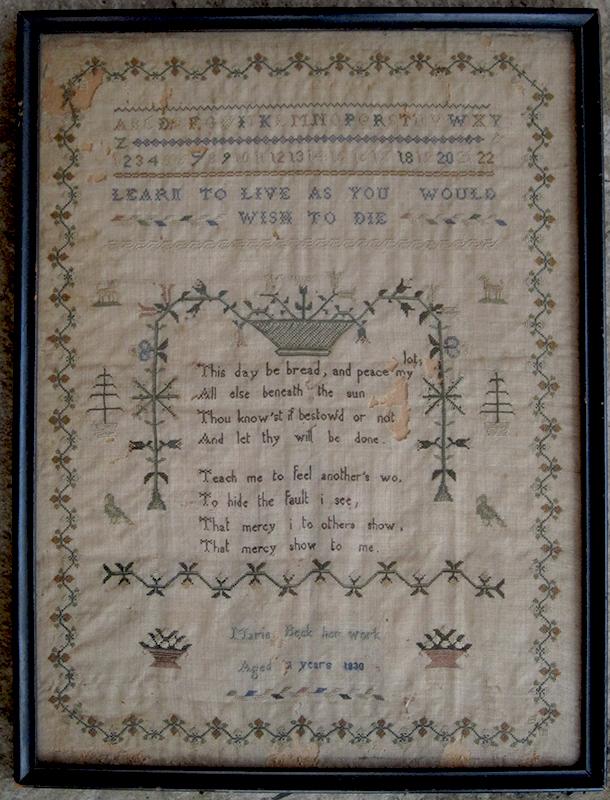 A B C D E F G H I K L M N O P Q R S T U V W X Y
Z
1 2 3 4 5 6 7 8 9 10 11 12 13 14 15 16 17 18 19 20 21 22
LEARN TO LIVE AS YOU WOULD
WISH TO DIE
This day be bread, and peace my lot,
All else beneath the sun
Thou know'st if bestow'd or not
And let thy will be done.
Teach me to feel another's wo,
To hide the fault i see,
That mercy i to others show,
That mercy show to me.
Maria Beck her work
Aged years 1830